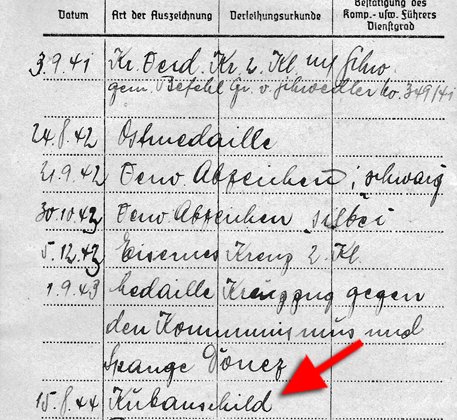 Bestätigung des
Datum Art der Auszeichnung Verleihungsurkunde Komp.- usw. Führers
Dienstgrad
3.9.41 Kr. Verd. Kr. 2. Kl. m/Schw.
gem. Befehl Gr. v. Schwedler No. 349/41
24.8.42 Ostmedaille
21.9.42 Verw. Abzeichen i. schwarz
30.10.42 Verw. Abzeichen silber
5.12.42 Eisernes Kreuz 2. Kl.
1.9.43 Medaille Kreuzzug gegen
den Kommunismus und
Spange Donez
15.8.44 Kubanschild